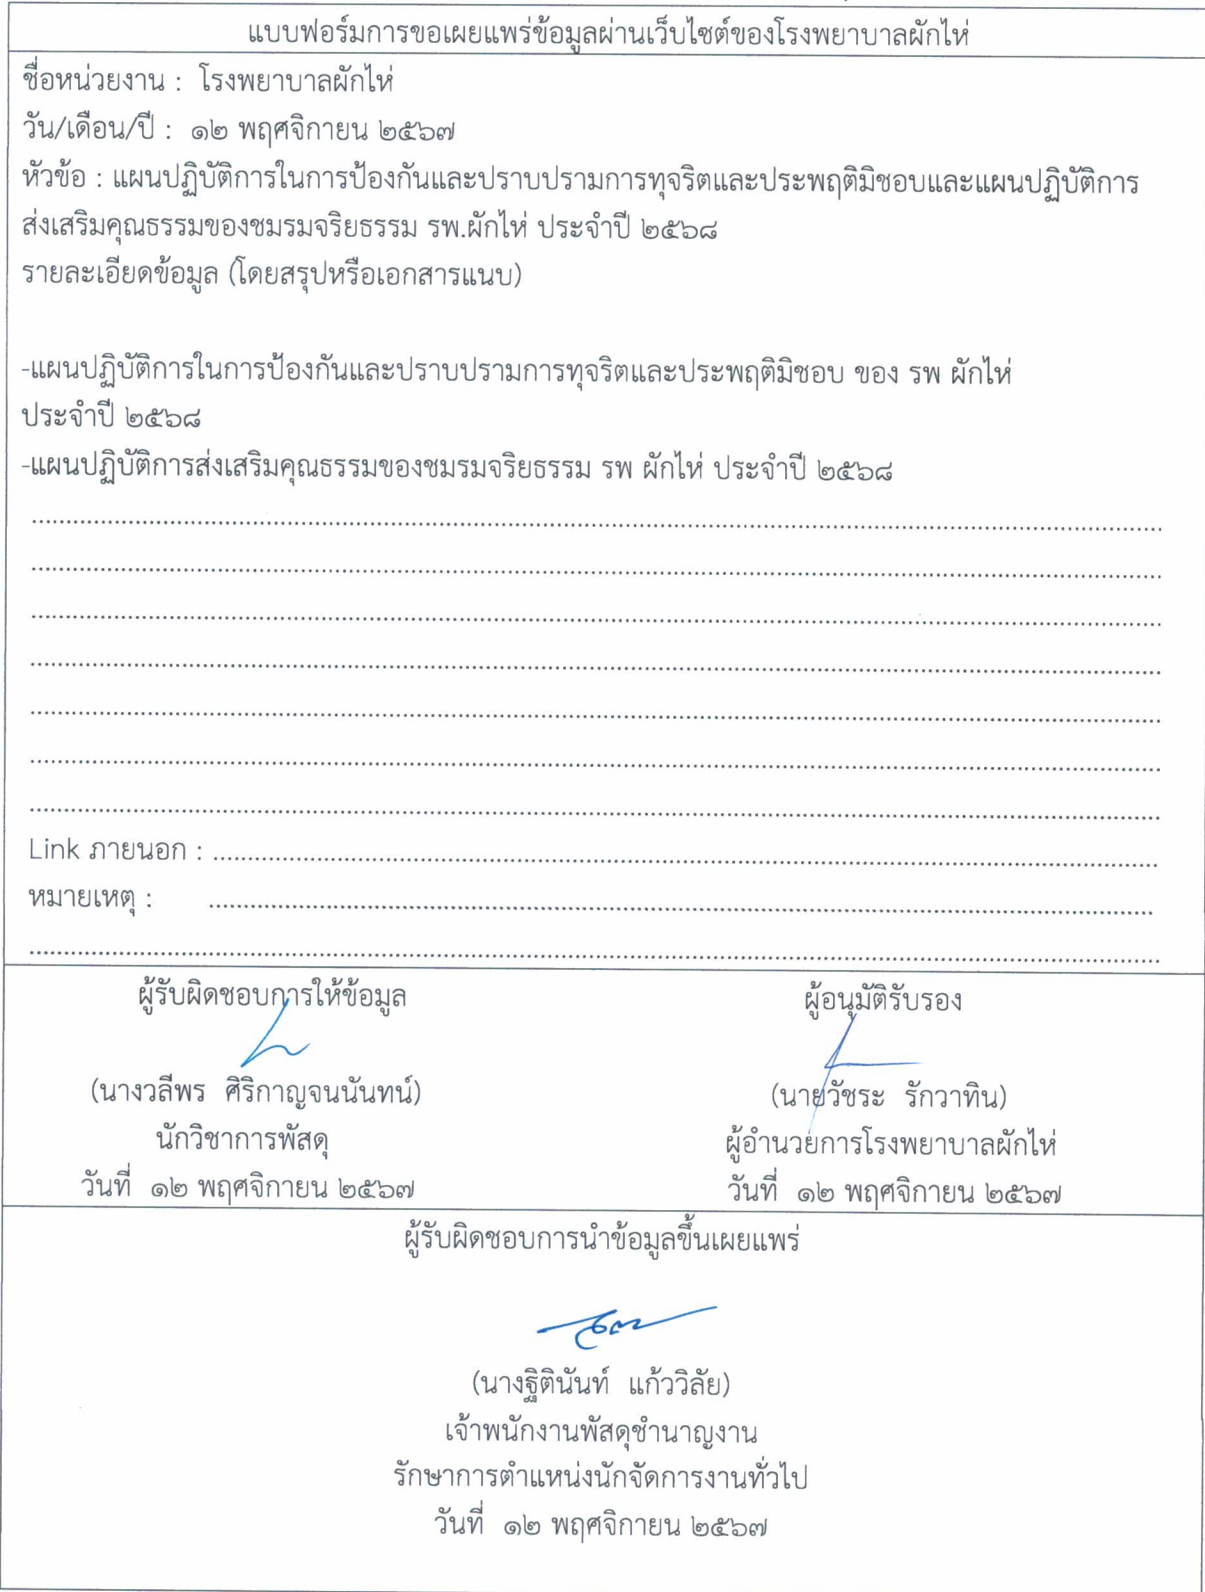 แบบฟอร์มการขอเผยแพร่ข้อมูลผ่านเว็บไซต์ของโรงพยาบาลผักไห่
ชื่อหน่วยงาน : โรงพยาบาลผักไห่
วัน/เดือน/ปี : ๑๒ พฤศจิกายน ๒๕๖๗
หัวข้อ : แผนปฏิบัติการในการป้องกันและปราบปรามการทุจริตและประพฤติมิชอบและแผนปฏิบัติการ
ส่งเสริมคุณธรรมของชมรมจริยธรรม รพ.ผักไห่ ประจำปี ๒๕๖๘
รายละเอียดข้อมูล (โดยสรุปหรือเอกสารแนบ)
-แผนปฏิบัติการในการป้องกันและปราบปรามการทุจริตและประพฤติมิชอบ ของ รพ ผักไห่
ประจำปี ๒๕๖๘
-แผนปฏิบัติการส่งเสริมคุณธรรมของชมรมจริยธรรม รพ ผักไห่ ประจำปี ๒๕๖๘
Link ภายนอก :
หมายเหตุ :
ผู้รับผิดชอบการให้ข้อมูล
(นางวลีพร ศิริกาญจนนันทน์)
นักวิชาการพัสดุ
วันที่ ๑๒ พฤศจิกายน ๒๕๖๗
ผู้อนุมัติรับรอง
(นายวัชระ รักวาทิน)
ผู้อำนวยการโรงพยาบาลผักไห่
วันที่ ๑๒ พฤศจิกายน ๒๕๖๗
ผู้รับผิดชอบการนำข้อมูลขึ้นเผยแพร่
(นางฐิตินันท์ แก้ววิลัย)
เจ้าพนักงานพัสดุชำนาญงาน
รักษาการตำแหน่งนักจัดการงานทั่วไป
วันที่ ๑๒ พฤศจิกายน ๒๕๖๗